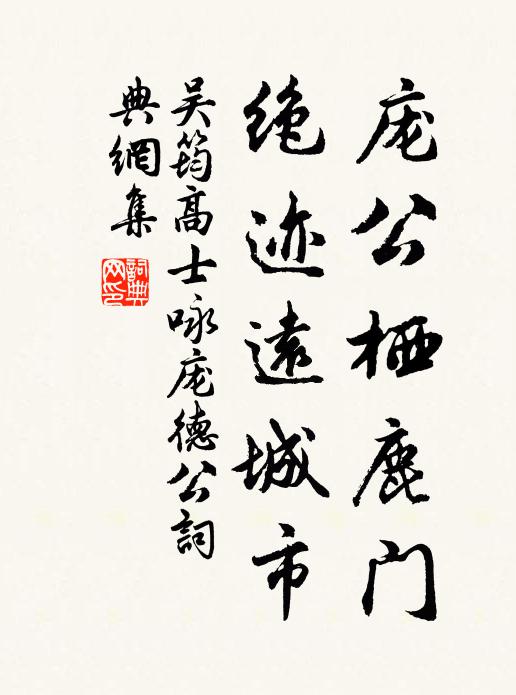 庞公栖鹿门
绝迹遠城市
吴筠高士咏庞德公詞
典網集
詞典网印